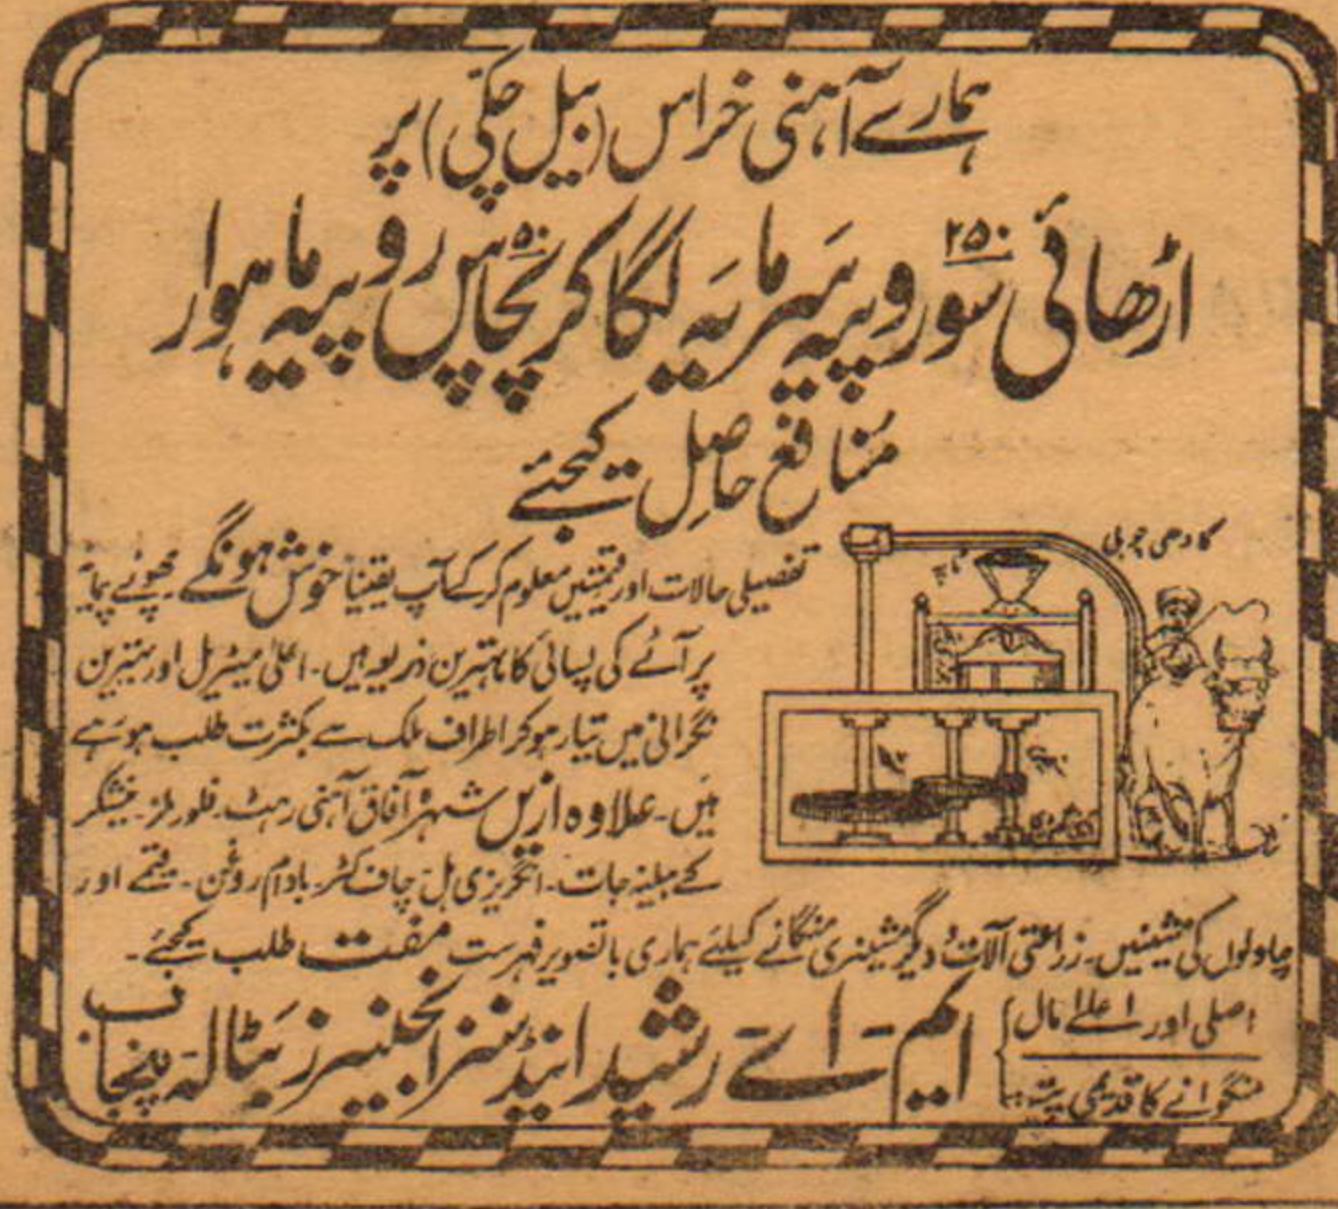 ہمارے آہنی خراس (بیل چکی) پر
اڑھائی ۲۵۰ سو روپیہ سرمایہ لگا کر ۵۰ پچاس روپیہ ماہوار
منافع حاصل کیجئے
گادھی چوبی
تفصیلی حالات اور قیمتیں معلوم کر کے آپ یقیناً خوش ہونگے۔ چھوٹے پیمانہ
پر آٹے کی پسائی کا بہترین ذریعہ ہیں۔ اعلیٰ میٹریل اور بہترین
نگرانی میں تیار ہو کر اطراف ملک سے بکثرت طلب ہو رہے
ہیں۔ علاوہ ازیں شہرۂ آفاق آہنی رہٹ۔ فلور ملز۔ نیشکر
کے بیلنہ جات۔ انگریزی ہل۔ چاف کٹر۔ بادام روغن۔ قیمے اور
چاولوں کی مشینیں۔ زراعتی آلات و دیگر مشینری منگانے کیلئے ہماری باتصویر فہرست مفت طلب کیجئے۔
اصلی اور اعلےٰ مال
منگوانے کا قدیمی پتہ:
ایم۔ اے رشید اینڈ سنز انجنیئرز بٹالہ پنجاب